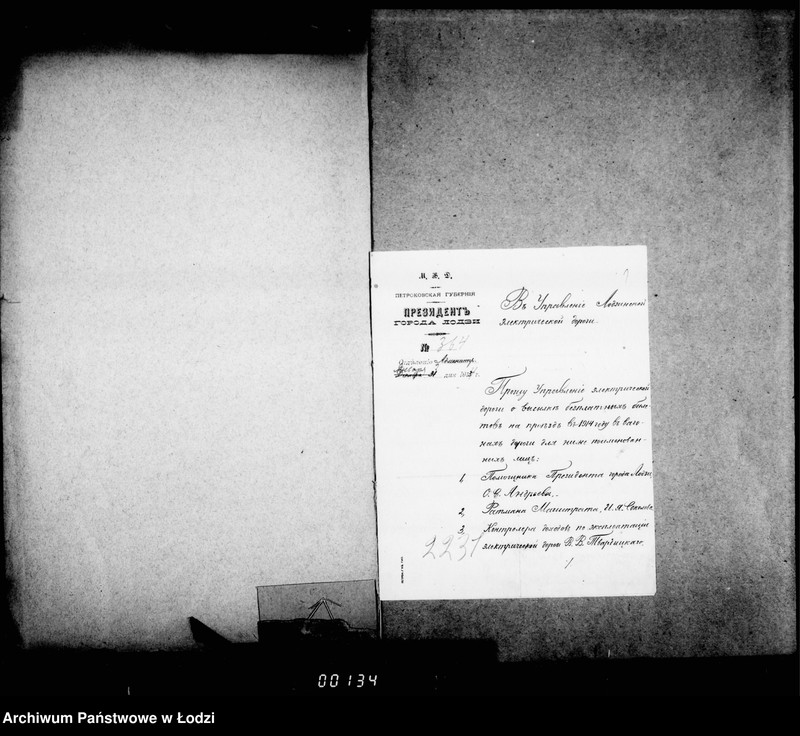 М. В. Д.
ПЕТРОКОВСКАЯ ГУБЕРНІЯ
ПРЕЗИДЕНТЪ
ГОРОДА ЛОДЗИ
№ 354
Въ Управленіе Лодзинской
электрической дороги.
Прошу Управленіе электрической
дороги о высылкѣ безплатныхъ биле-
товъ на проѣздъ въ 1914 году въ ваго-
нахъ дороги для ниже поименован-
ныхъ лицъ:
1, Помощника Президента города Лодзи,
О. С. Андреева.
2, Ратмана Магистрата,
3, Контролера доходовъ по эксплоатаціи
электрической дороги В. В. Твардицкаго.
2231
00134
Archiwum Państwowe w Łodzi